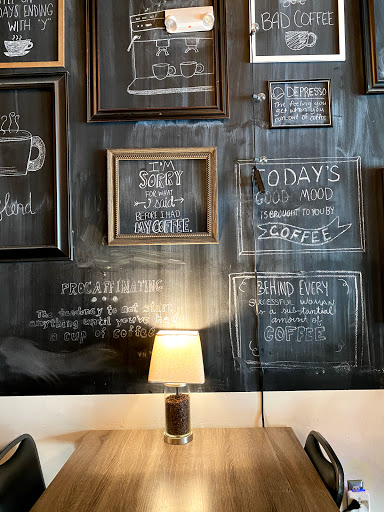 DAYS ENDING
WITH "Y"
BAD COFFEE
DEPRESSO
The feeling you
get when you
run out of coffee
Blend
I'M
SORRY
FOR WHAT
I said
BEFORE I HAD
MY COFFEE.
TODAY'S
GOOD MOOD
IS BROUGHT TO YOU BY
COFFEE
PROCAFFINATING
The tendency to not start
anything until you've had
a cup of coffee
BEHIND EVERY
SUCCESSFUL WOMAN
is a substantial
amount of
COFFEE